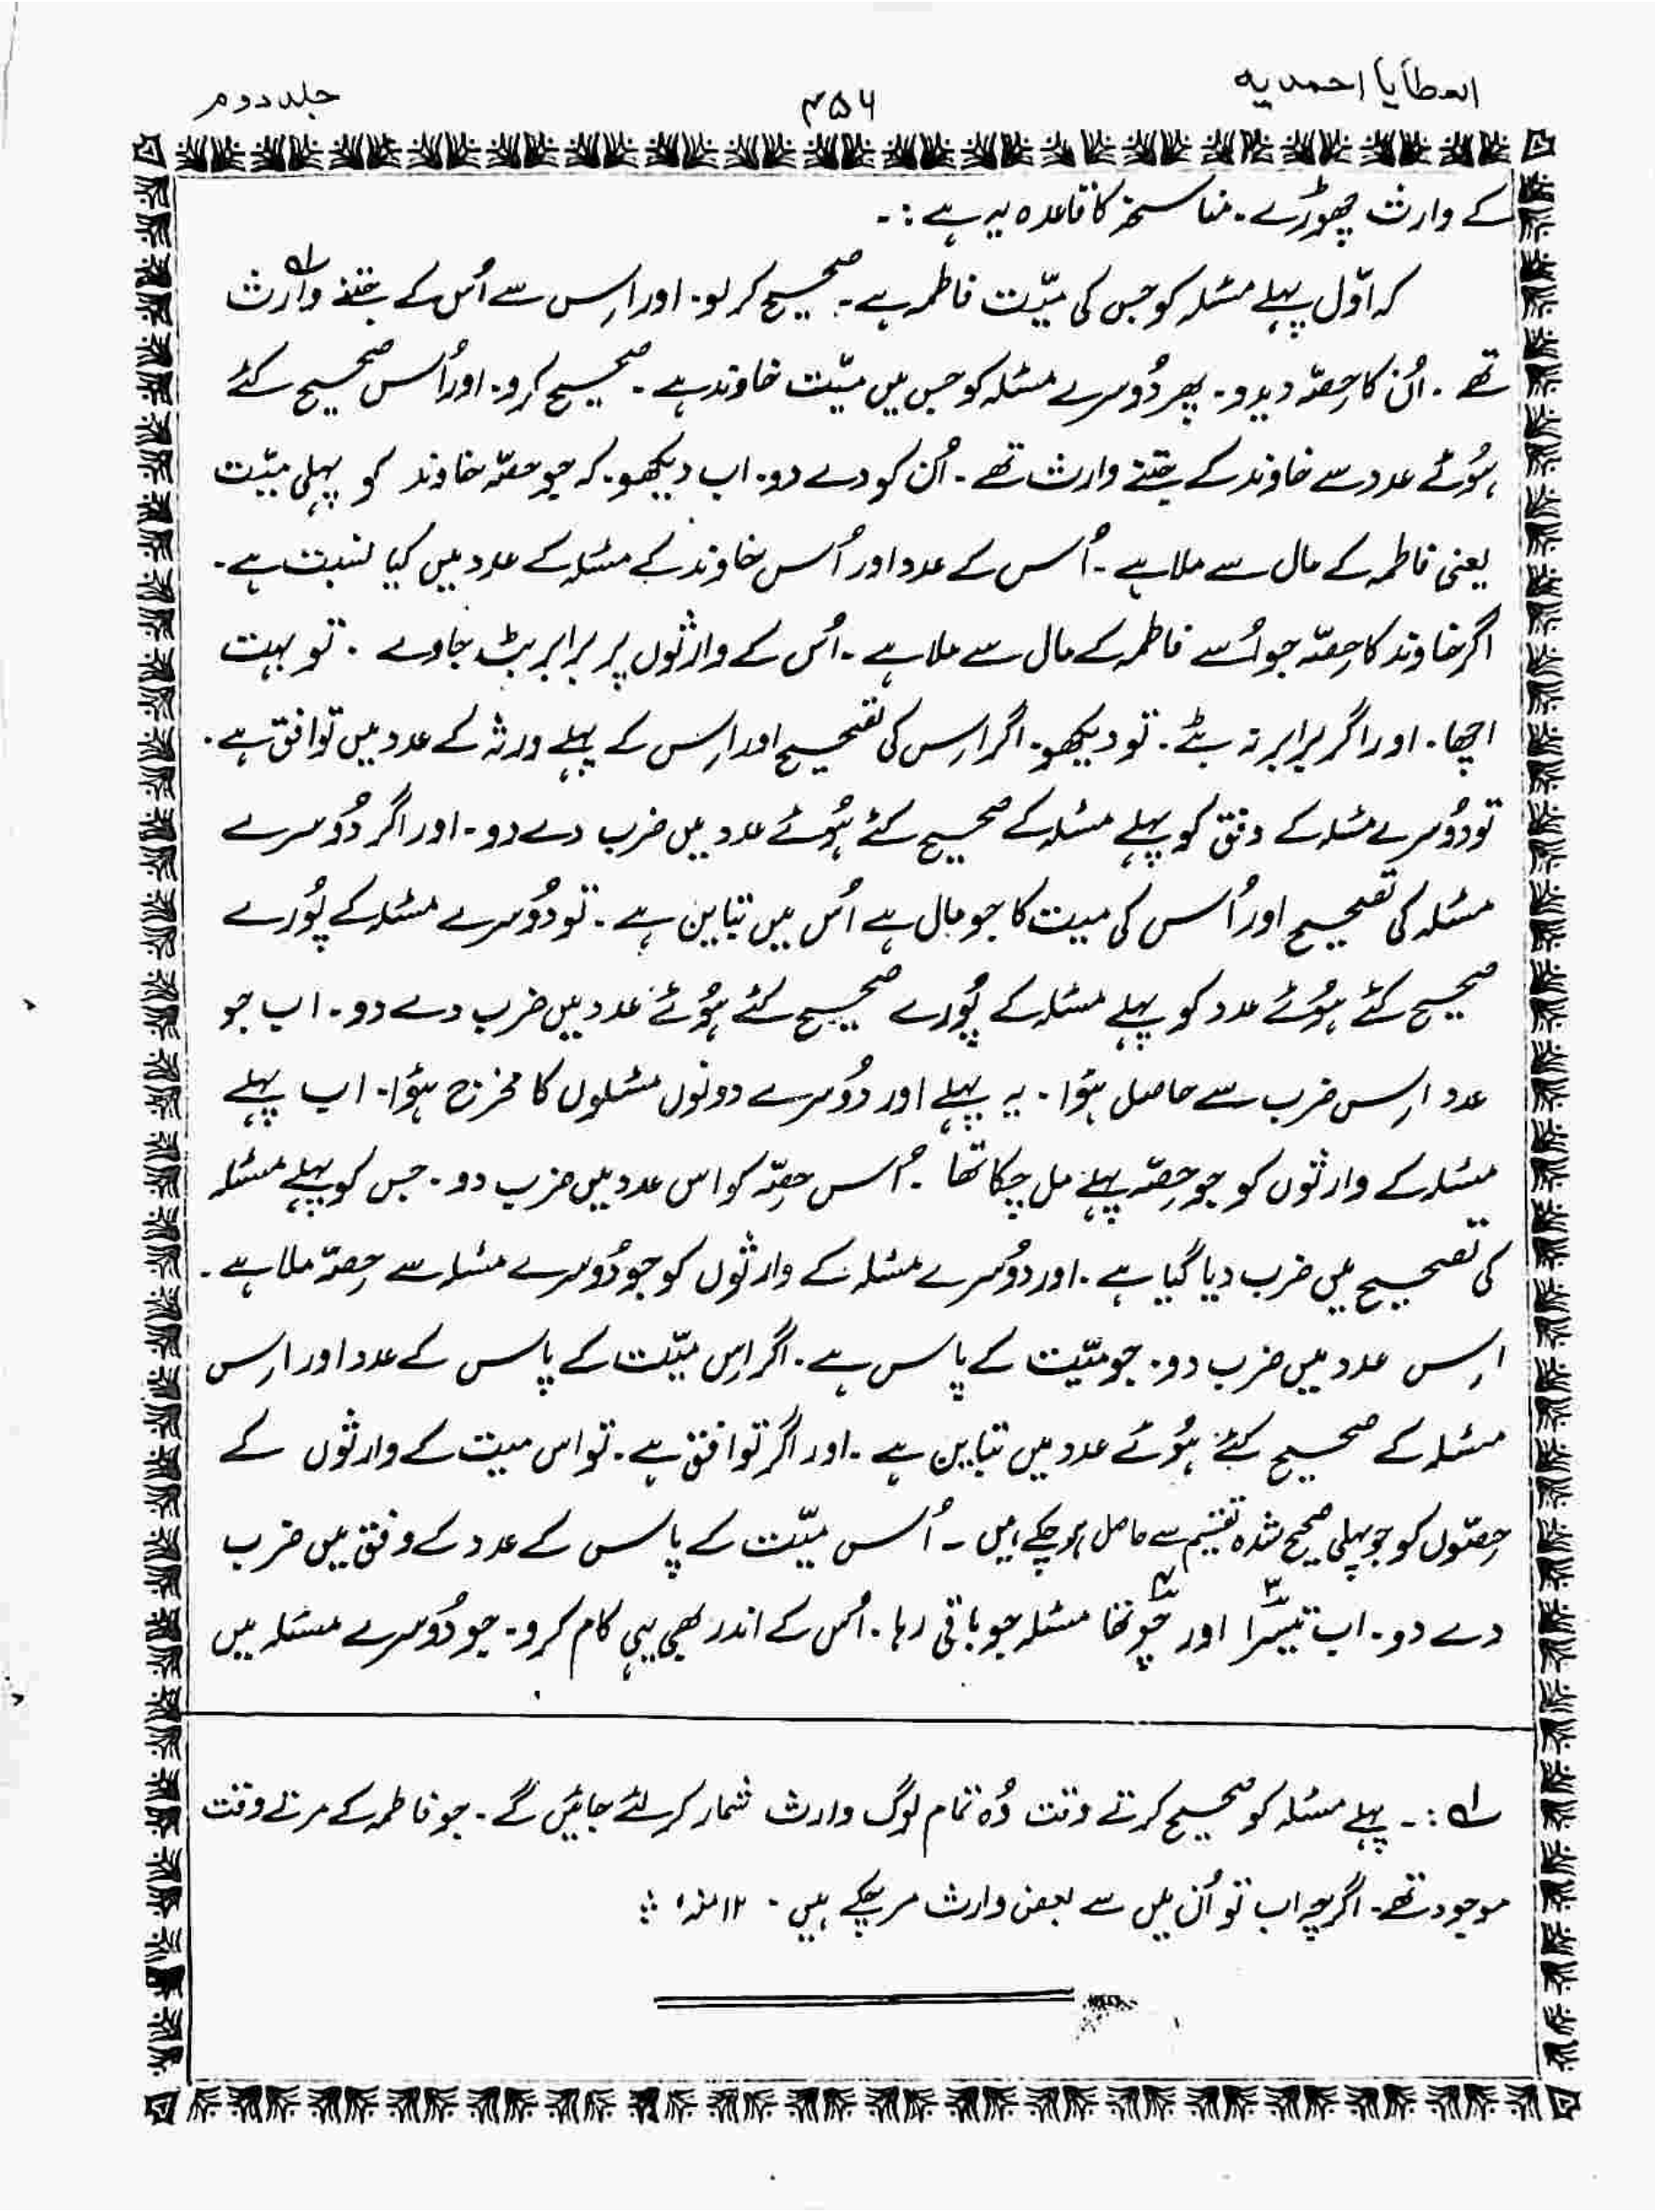 العطايا احمديه
۴۵۶
جلد دوم
کے وارث چھوڑے۔ مناسخہ کا قاعدہ یہ ہے :۔
کہ اوّل پہلے مسئلہ کو جس کی میّت فاطمہ ہے۔ صحیح کر لو۔ اور اِس سے اُس کے جتنے وارث
تھے۔ اُن کا حِصّہ دیدو۔ پھر دُوسرے مسئلہ کو جس میں میّت خاوند ہے۔ صحیح کرو۔ اور اُس صحیح کئے
ہُوئے عدد سے خاوند کے جتنے وارث تھے۔ اُن کو دے دو۔ اب دیکھو۔ کہ جو حصّہ خاوند کو پہلی میّت
یعنی فاطمہ کے مال سے ملا ہے۔ اُس کے عدد اور اُس خاوند کے مسئلہ کے عدد میں کیا نسبت ہے۔
اگر خاوند کا حِصّہ جو اُسے فاطمہ کے مال سے ملا ہے۔ اُس کے وارثوں پر برابر بٹ جاوے۔ تو بہت
اچھا۔ اور اگر برابر نہ بٹے۔ تو دیکھو۔ اگر اِس کی تصحیح اور اِس کے پہلے ورثہ کے عدد میں توافق ہے۔
تو دُوسرے مسئلہ کے وفق کو پہلے مسئلہ کے صحیح کئے ہُوئے عدد میں ضرب دے دو۔ اور اگر دُوسرے
مسئلہ کی تصحیح اور اُس کی میت کا جو مال ہے اُس میں تباین ہے۔ تو دُوسرے مسئلہ کے پُورے
صحیح کئے ہُوئے عدد کو پہلے مسئلہ کے پُورے صحیح کئے ہُوئے عدد میں ضرب دے دو۔ اب جو
عدد اِس ضرب سے حاصل ہوُا۔ یہ پہلے اور دُوسرے دونوں مسئلوں کا مخرج ہوُا۔ اب پہلے
مسئلہ کے وارثوں کو جو حِصّہ پہلے مل چکا تھا۔ اُس حِصّہ کو اس عدد میں ضرب دو۔ جس کو پہلے مسئلہ
کی تصحیح میں ضرب دیا گیا ہے۔ اور دوُسرے مسئلہ کے وارثوں کو جو دُوسرے مسئلہ سے حِصّہ ملا ہے۔
اِس عدد میں ضرب دو۔ جو میّت کے پاس ہے۔ اگر اِس میّت کے پاس کے عدد اور اِس
مسئلہ کے صحیح کئے ہُوئے عدد میں تباین ہے۔ اور اگر توافق ہے۔ تو اس میت کے وارثوں کے
حِصّوں کو جو پہلی صحیح شدہ تقسیم سے حاصل ہو چکے ہیں۔ اُس میّت کے پاس کے عدد کے وفق میں ضرب
دے دو۔ اب تیسرا اور چوتھا مسئلہ جو باقی رہا۔ اُس کے اندر بھی یہی کام کرو۔ جو دُوسرے مسئلہ میں
؂۱ :۔ پہلے مسئلہ کو صحیح کرتے وقت وُہ تمام لوگ وارث شمار کر لئے جائیں گے۔ جو فاطمہ کے مرتے وقت
موجود تھے۔ اگرچہ اب تو اُن میں سے بعض وارث مر چکے ہیں۔ ۱۲ منہ